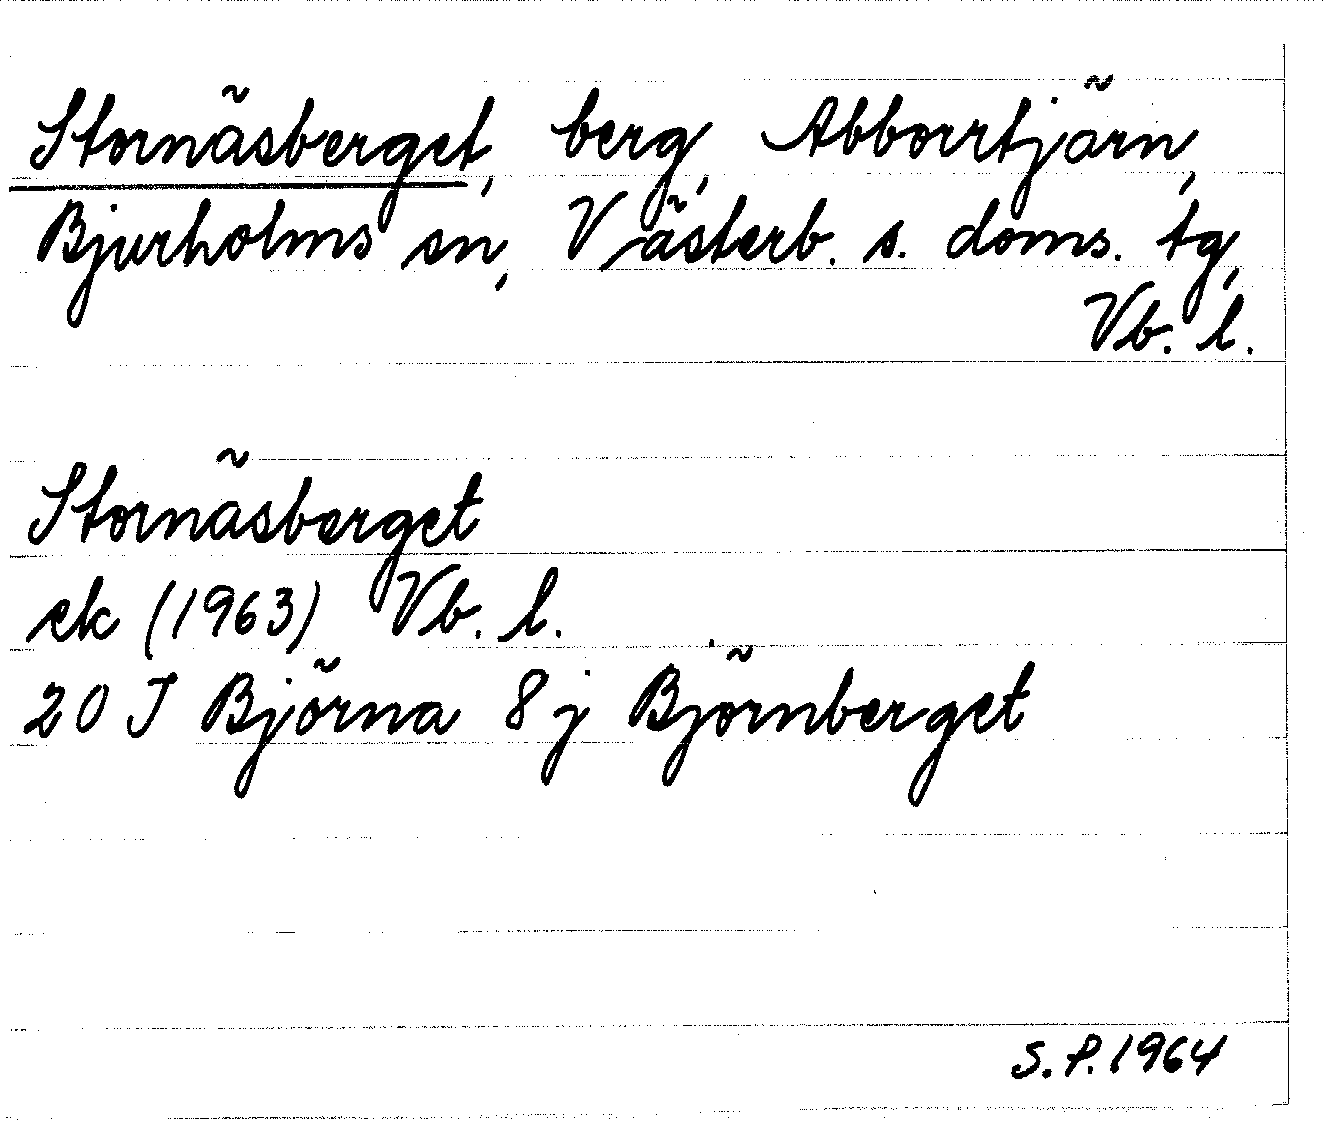 Stornäsberget, berg, Abborrtjärn,
Bjurholms sn, Västerb. s. doms. tg,
Vb. l.
Stornäsberget
ek (1963) Vb. l.
20 J Björna 8 j Björnberget
S.P. 1964